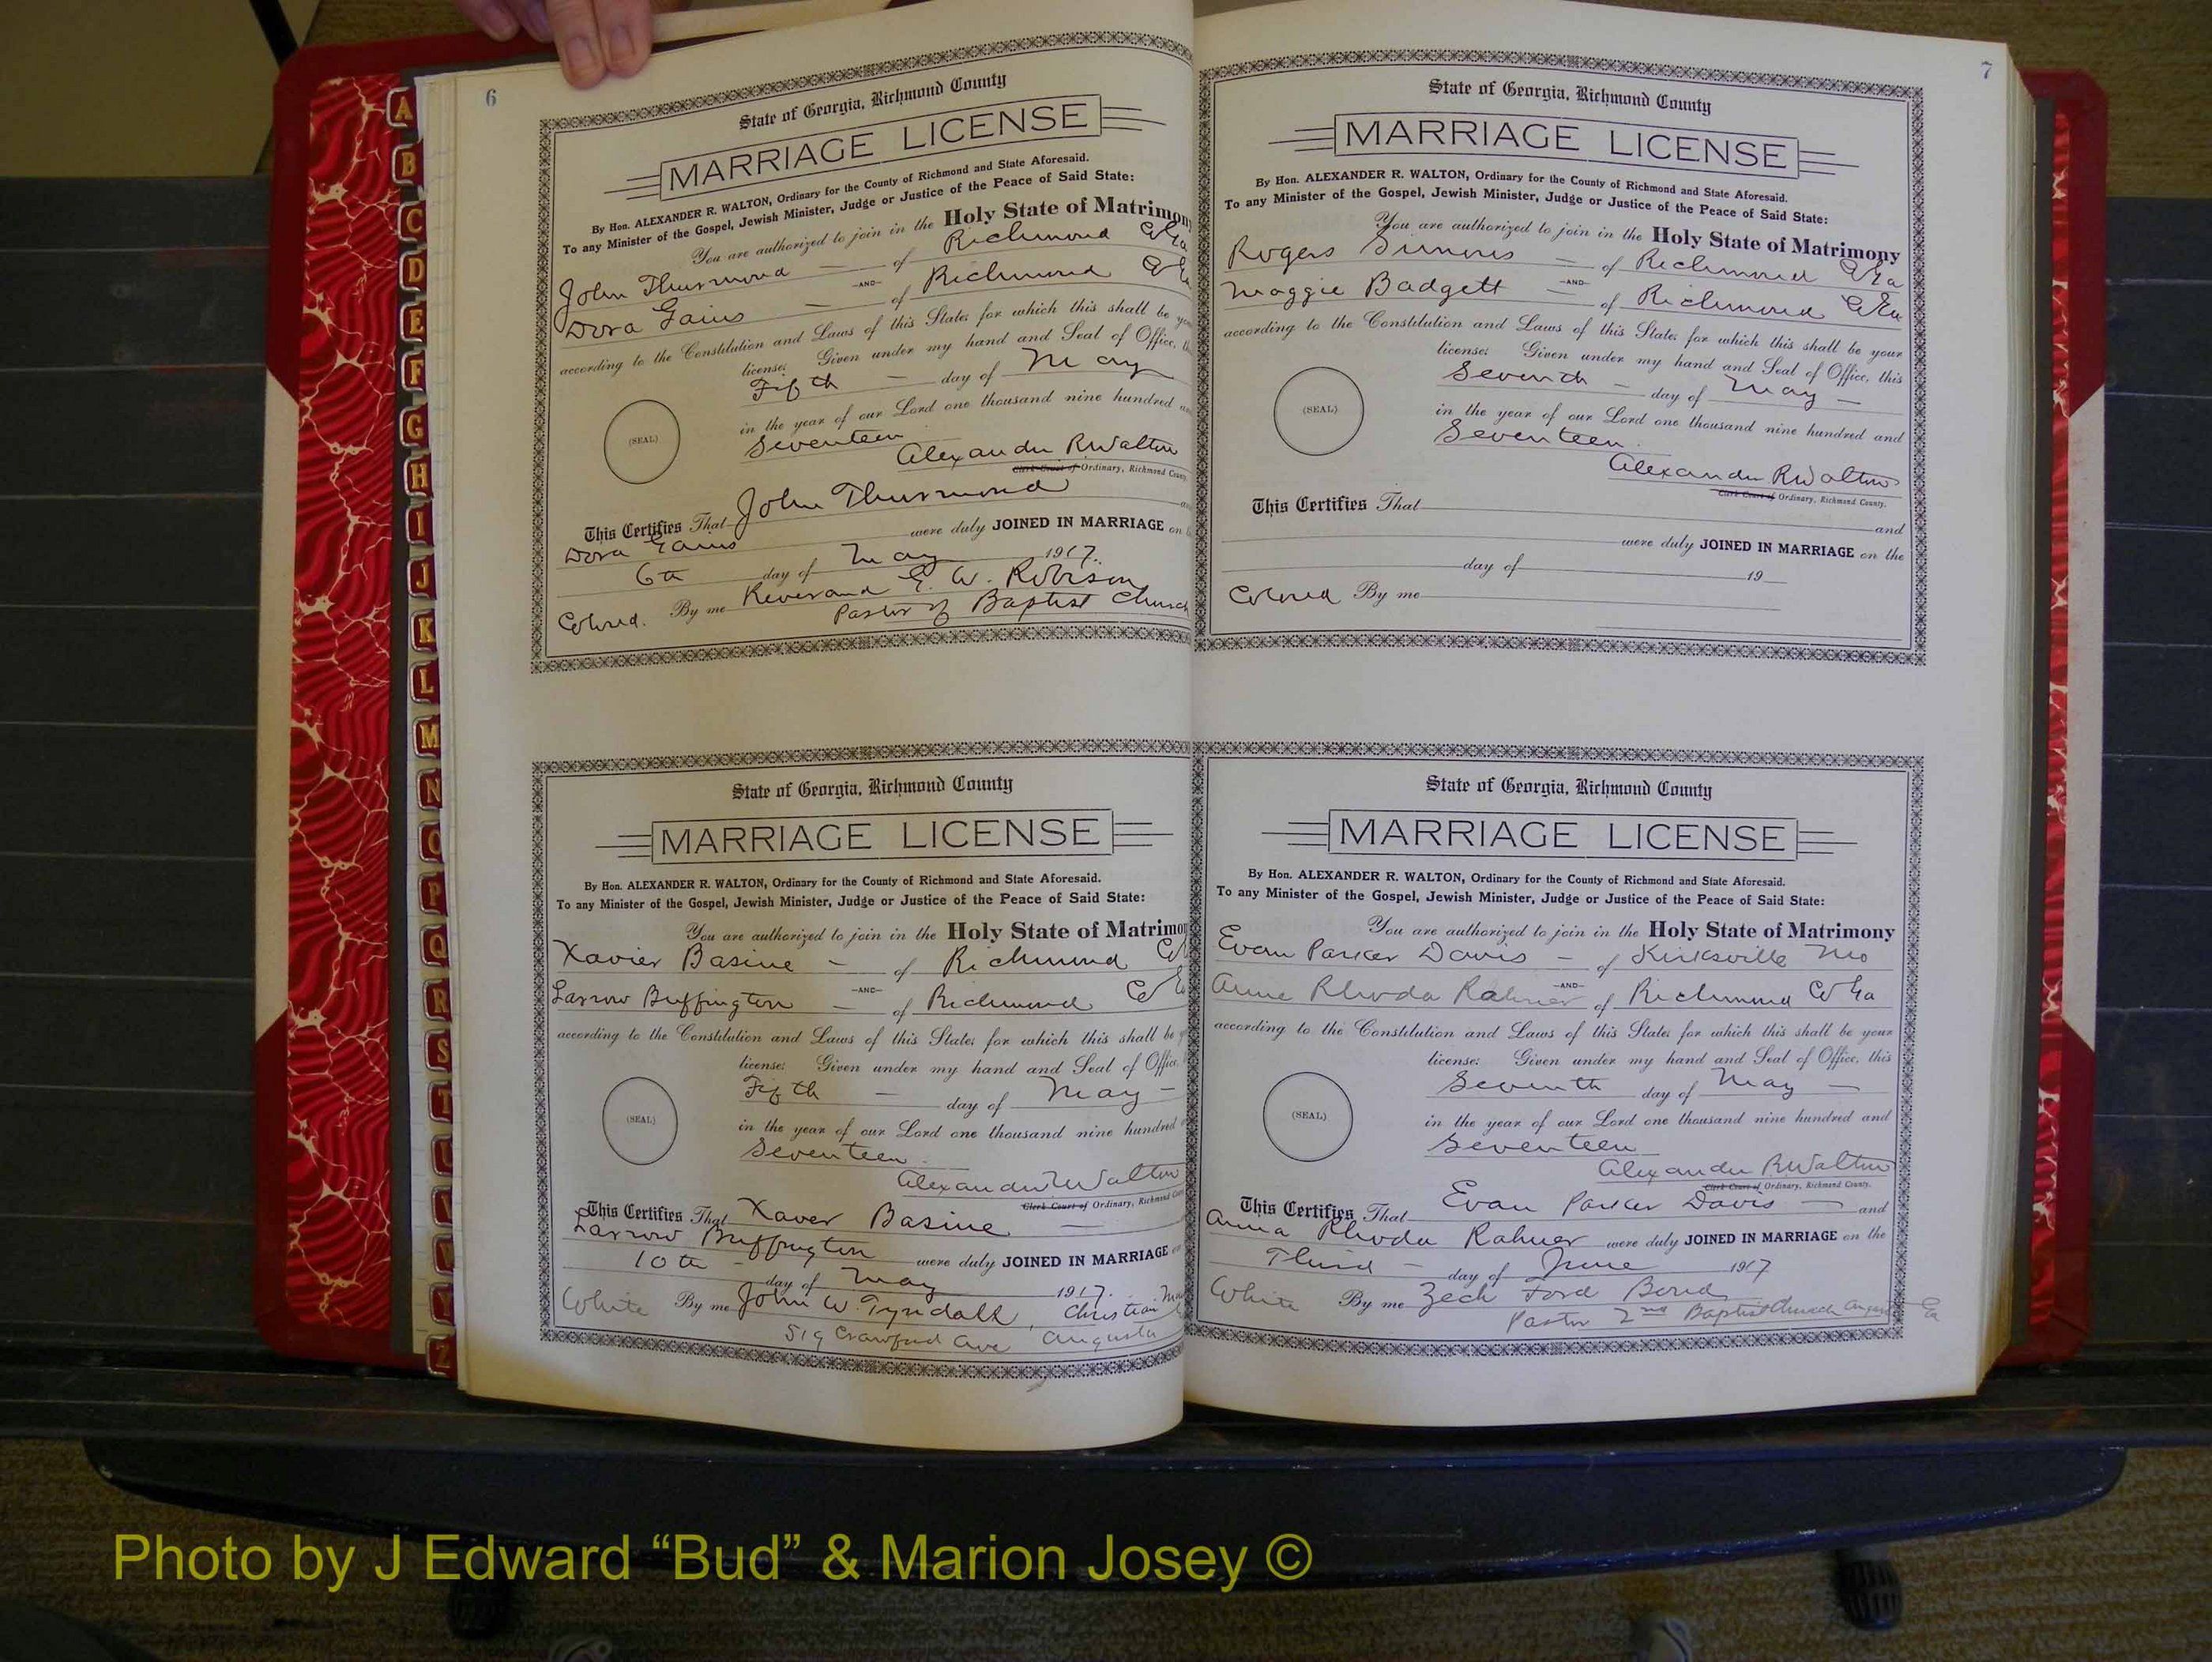 6
State of Georgia, Richmond County
MARRIAGE LICENSE
By Hon. ALEXANDER R. WALTON, Ordinary for the County of Richmond and State Aforesaid.
To any Minister of the Gospel, Jewish Minister, Judge or Justice of the Peace of Said State:
You are authorized to join in the Holy State of Matrimony
John Thurmond — of Richmond Co Ga
—AND—
Dora Gains — of Richmond Co
according to the Constitution and Laws of this State; for which this shall be
license: Given under my hand and Seal of Office,
Fifth — day of May
(SEAL)
in the year of our Lord one thousand nine hundred
Seventeen
Alexander R Walton
Clerk Court of Ordinary, Richmond County
This Certifies That John Thurmond
Dora Gains were duly JOINED IN MARRIAGE on
6th day of May 1917.
Colored. By me Reverand E. W. Robison
Pastor of Baptist Church
State of Georgia, Richmond County
MARRIAGE LICENSE
By Hon. ALEXANDER R. WALTON, Ordinary for the County of Richmond and State Aforesaid.
To any Minister of the Gospel, Jewish Minister, Judge or Justice of the Peace of Said State:
You are authorized to join in the Holy State of
Xavier Basine — of Richmond
—AND—
Larrow Buffington — of Richmond Co
according to the Constitution and Laws of this State; for which this shall be
license: Given under my hand and Seal of Office,
Fifth — day of May —
(SEAL)
in the year of our Lord one thousand nine hundred
Seventeen
Alexander R Walton
Clerk Court of Ordinary, Richmond
This Certifies That Xaver Basine —
Larrow Buffington were duly JOINED IN MARRIAGE
10th — day of May 1917.
White By me John W. Tyndall, Christian
519 Crawford Ave Augusta
7
State of Georgia, Richmond County
MARRIAGE LICENSE
By Hon. ALEXANDER R. WALTON, Ordinary for the County of Richmond and State Aforesaid.
To any Minister of the Gospel, Jewish Minister, Judge or Justice of the Peace of Said State:
You are authorized to join in the Holy State of Matrimony
Rogers — of Richmond Co Ga
—AND—
Maggie Badgett — of Richmond Co Ga
according to the Constitution and Laws of this State; for which this shall be your
license: Given under my hand and Seal of Office, this
Seventh — day of May —
(SEAL)
in the year of our Lord one thousand nine hundred and
Seventeen.
Alexander R Walton
Clerk Court of Ordinary, Richmond County.
This Certifies That
and
were duly JOINED IN MARRIAGE on the
day of 19
Colored By me
State of Georgia, Richmond County
MARRIAGE LICENSE
By Hon. ALEXANDER R. WALTON, Ordinary for the County of Richmond and State Aforesaid.
To any Minister of the Gospel, Jewish Minister, Judge or Justice of the Peace of Said State:
You are authorized to join in the Holy State of Matrimony
Evan Parker Davis — of Kirksville Mo
—AND—
Anne Rhoda Rahner of Richmond Co Ga
according to the Constitution and Laws of this State; for which this shall be your
license: Given under my hand and Seal of Office, this
Seventh day of May —
(SEAL)
in the year of our Lord one thousand nine hundred and
Seventeen
Alexander R Walton
Clerk Court of Ordinary, Richmond County.
This Certifies That Evan Parker Davis — and
Anna Rhoda Rahner were duly JOINED IN MARRIAGE on the
Third — day of June 1917
White By me Zech Ford Bond
Pastor 2nd Baptist Church Ga
A
B
C
D
E
F
G
H
I
J
K
L
M
N
O
P
Q
R
S
T
U
V
W
Y
Z
Photo by J Edward “Bud” & Marion Josey ©